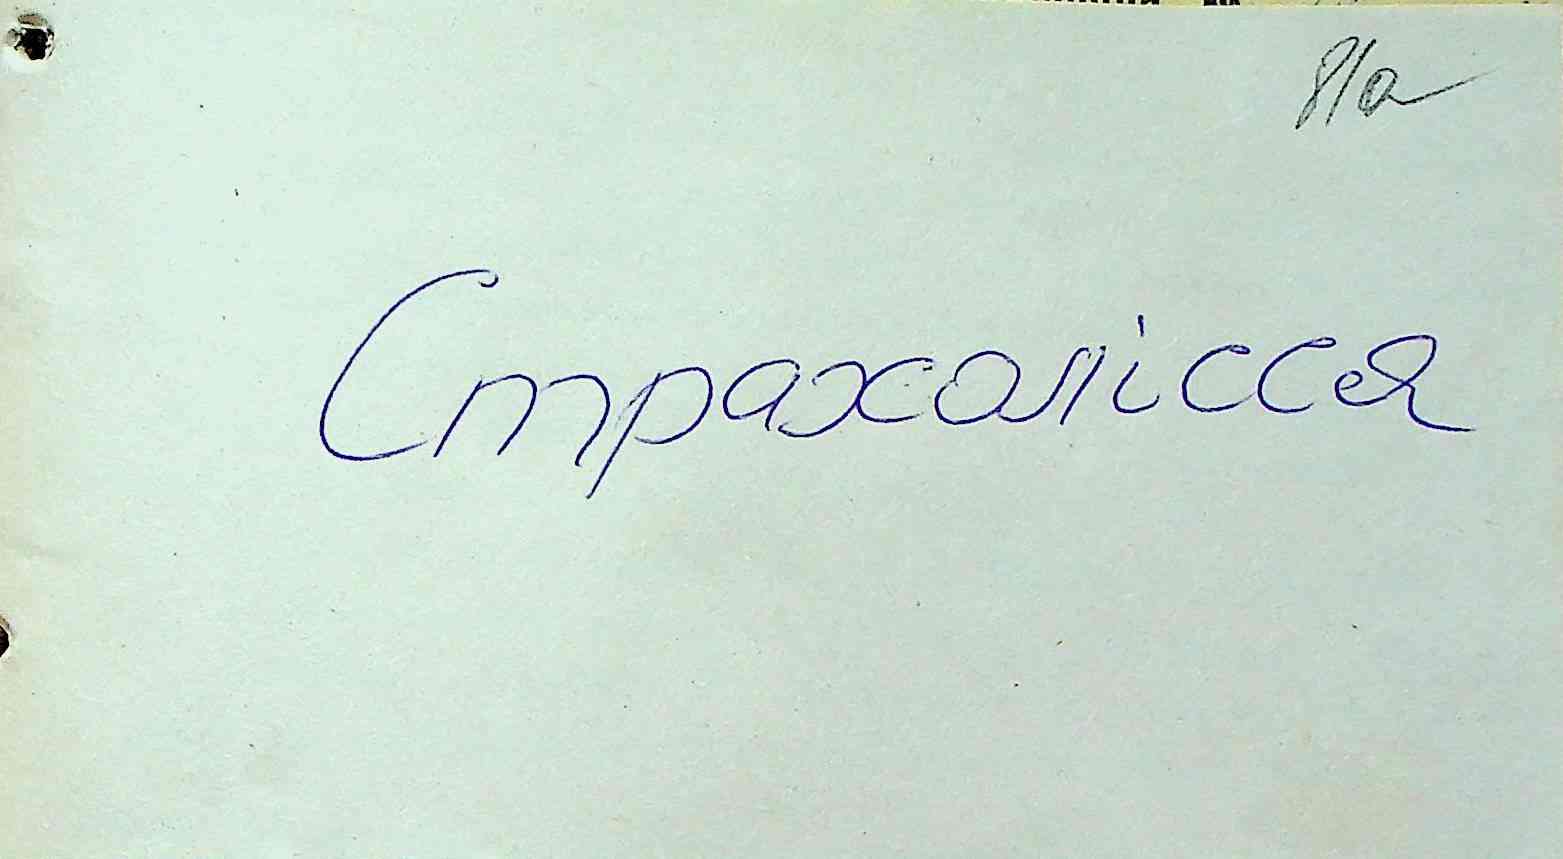 81а
Страхолісся